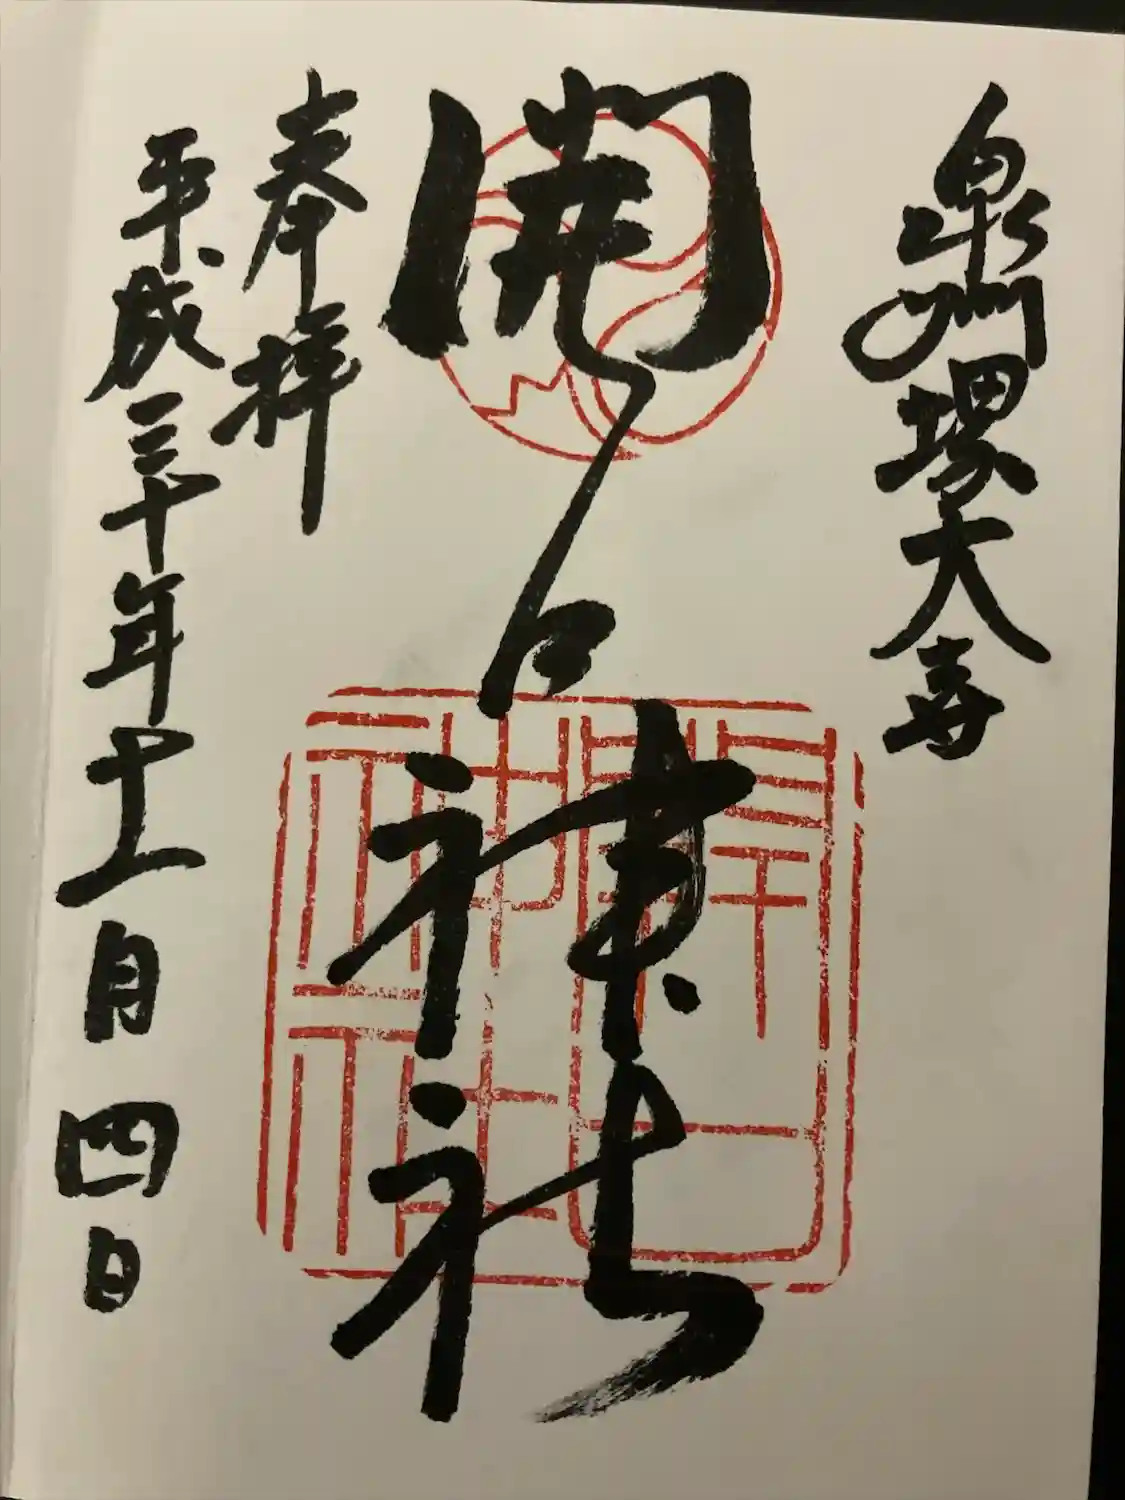 泉州堺大寺
開口神社
奉拝
平成三十年十一月四日
開口神社